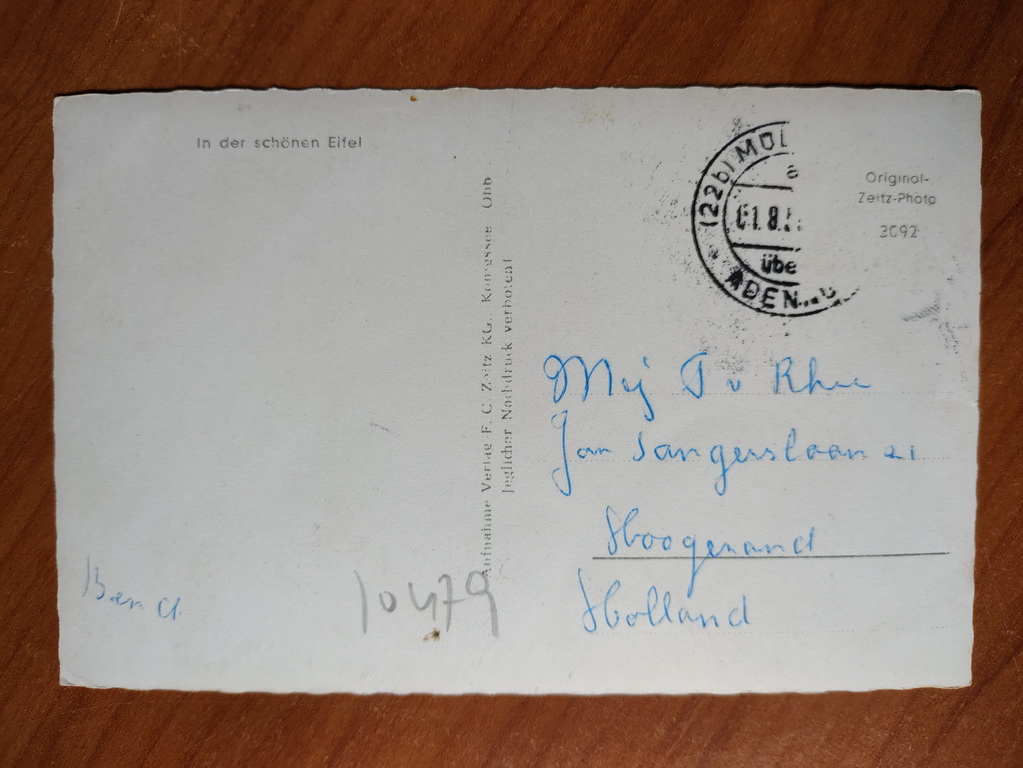 In der schönen Eifel
Aufnahme Verlag F. C. Zeitz KG., Königssee Obb
Jeglicher Nachdruck verboten!
(22b) MÜL
01.8.5
übe
ADEN
Original-
Zeitz-Photo
3092
Mej T v Rhee
Jan Sangerslaan 21
Hoogezand
Holland
10479